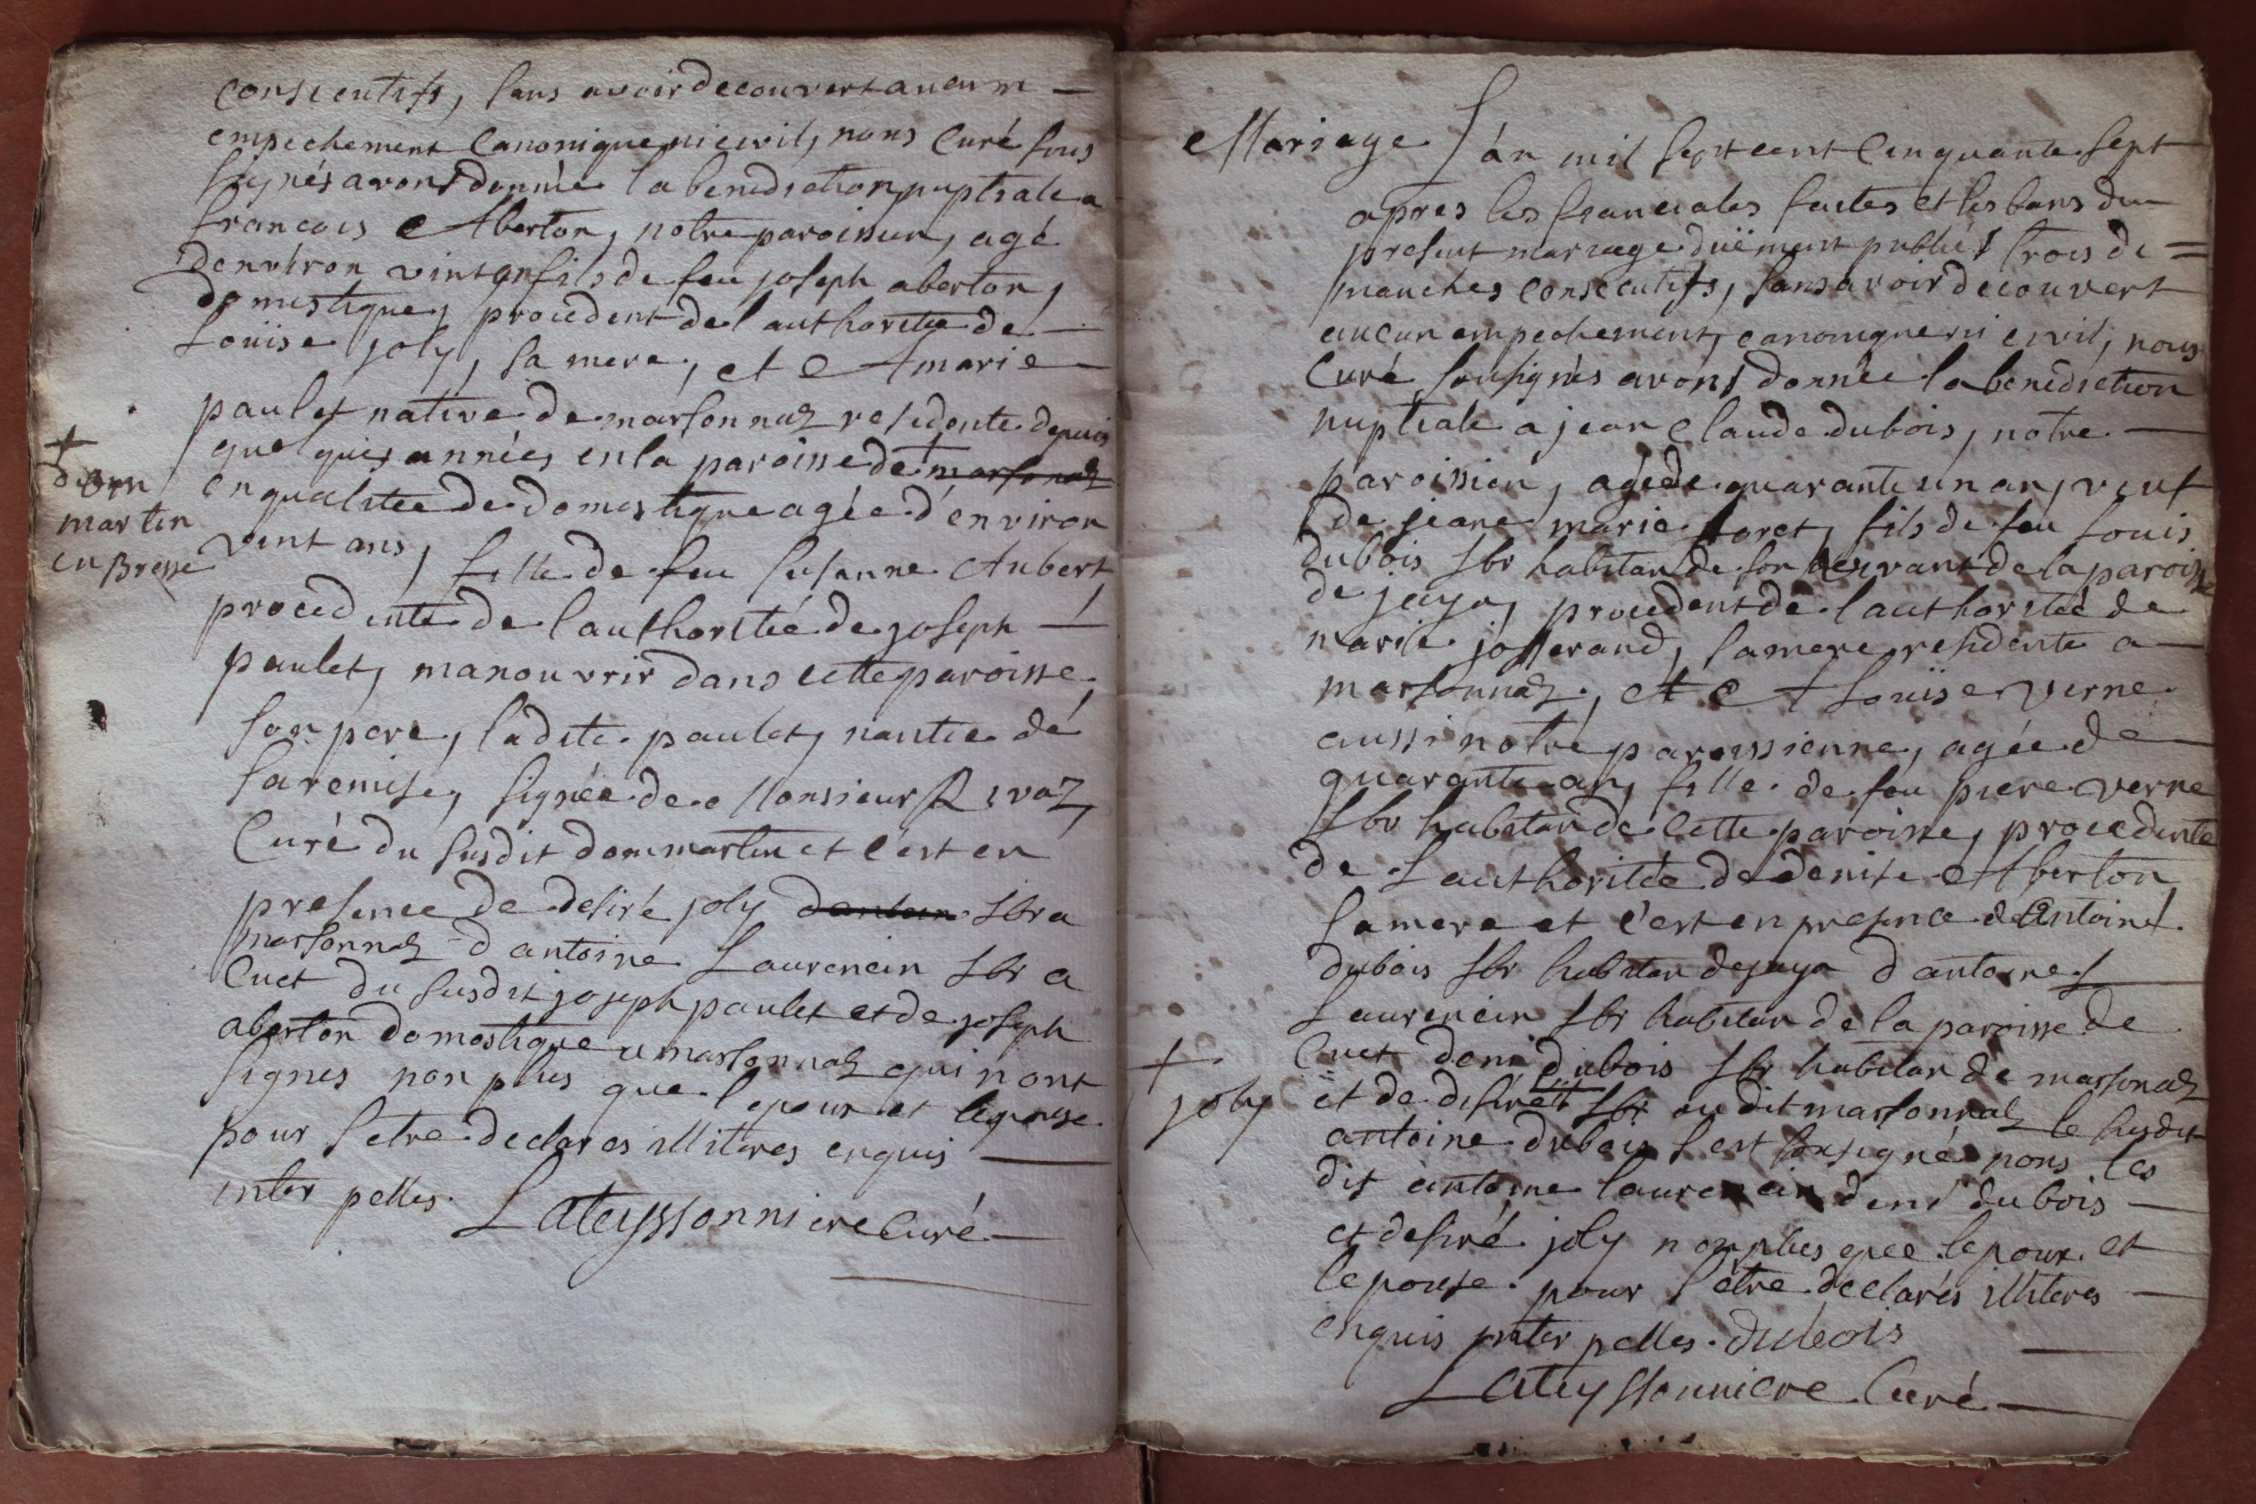 consecutifs, sans avoir decouvert aucun
empechement canonique ni civil, nous curé sous
signés avons donnée la benediction nuptiale a
francois Aberton, notre paroissien, agé
denviron vint an fils de feu joseph aberton,
domestique, procedent de l'authoritée de
Louise joly, sa mere, et A marie
paulet native de marsonnaz residente depuis
quelques années en la paroisse de + marsonaz
en qualitée de domestique agée d'environ
vint ans, fille de feu susanne Aubert
procedente de l'authoritée de joseph
paulet, manouvrir dans cette paroisse
son pere, ladite paulet, nantie de
sa remise, signée de Monsieur Rivaz,
Curé du susdit dommartin et c'est en
presence de desiré joly d'antoin lbr a
marsonnaz d'antoine Laurencin lbr a
Cuet du susdit joseph paulet et de joseph
aberton domestique a marsonnaz qui n'ont
signes non plus que l'epoux et l'epouse
pour s'etre declares illiteres enquis
inter pelles.
Lateyssonniere Curé
+
dom
martin
en Bresse
Mariage
L'an mil sept cent cinquante sept
apres les fianciales faites et les bans du
present mariage duëment publiés trois di=
manches consecutifs, sans avoir decouvert
aucun empechement, canonique ni civil, nous
Curé sousignés avons donnée la benediction
nuptiale a jean claude dubois, notre
paroissien, agé de quarante un an, veuf
de jeane marie foret, fils de feu Louis
dubois lbr habitan de son vivant de la paroisse
de jaya, procedent de l'authoritée de
marie josserand, sa mere residente a
marsonnaz, et A Louïse verne
aussi notre paroissienne, agée de
quarante an, fille de feu piere verne
lbr habitan de cette paroisse, procedente
de L'authoritée de denise Aberton
sa mere et c'est en presence d'Antoine
dubois lbr habitan de jaya d'antoine
Laurencin lbr habitan de la paroisse de
Cuet deni dubois lbr habitan de marsonaz
et de desiré + lbr au dit marsonnaz le susdit
antoine dubois s'est sousigné nons les
dit antoine laurencin deni dubois
et desiré joly non plus que l'epoux et
l'epouse pour s'être declarés illiteres
enquis inter pelles. dubois
Lateyssonniere Curé
+
joly